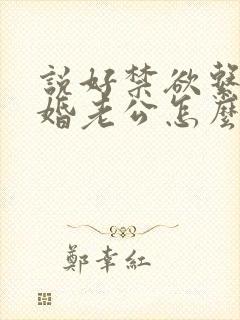 說好禁欲繫
婚老公怎麼
鄭幸紅